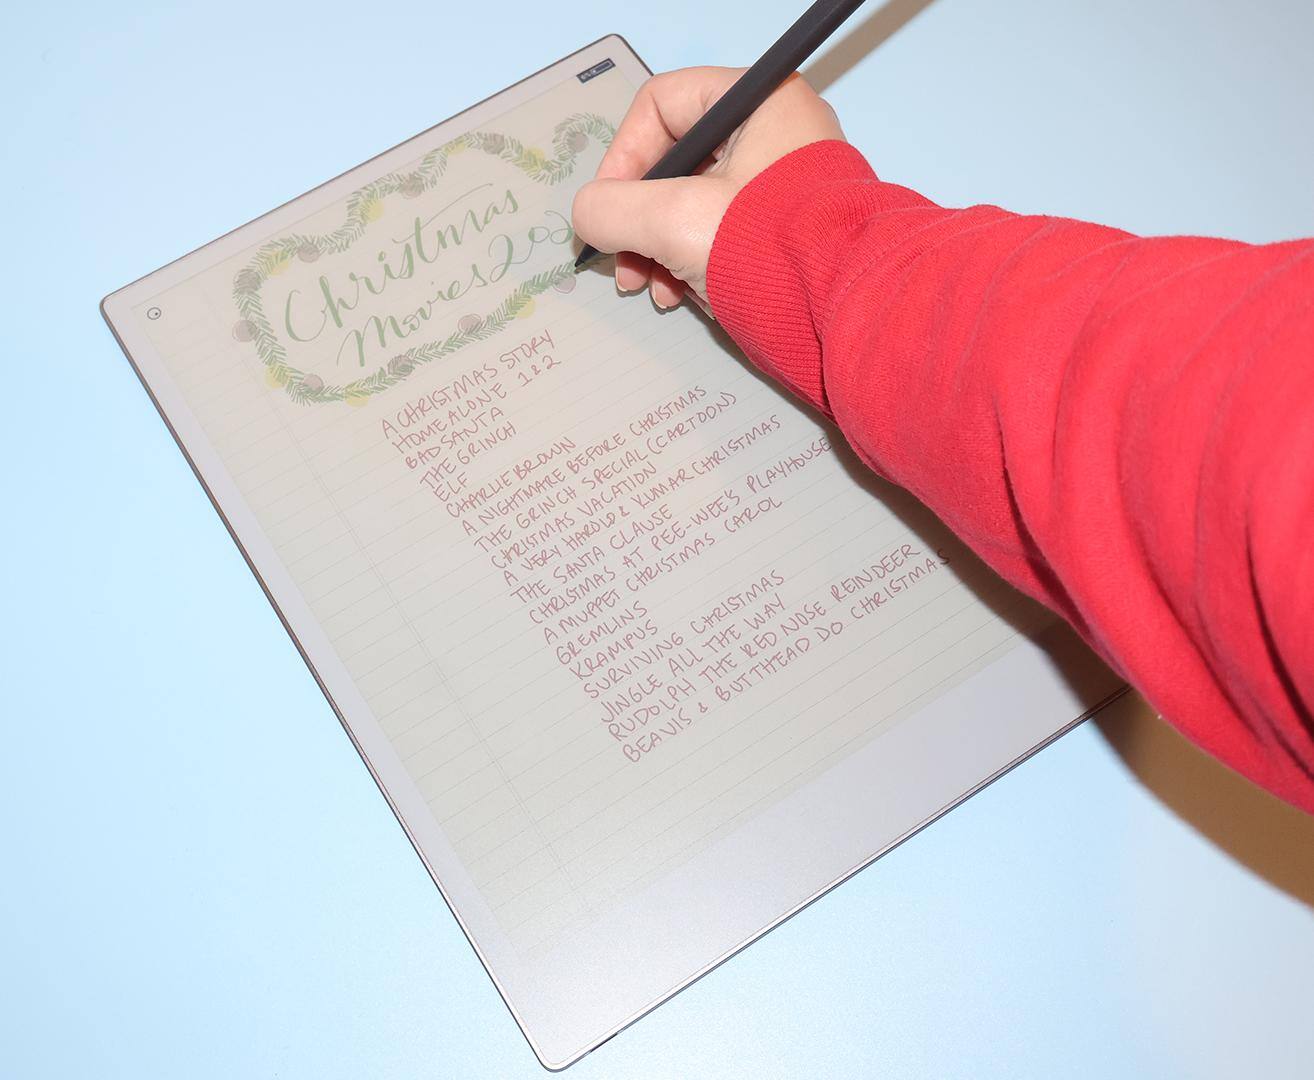 Christmas
Movies 202
A CHRISTMAS STORY
HOME ALONE 1 & 2
BAD SANTA
THE GRINCH
ELF
CHARLIE BROWN
A NIGHTMARE BEFORE CHRISTMAS
THE GRINCH SPECIAL (CARTOON)
CHRISTMAS VACATION
A VERY HAROLD & KUMAR CHRISTMAS
THE SANTA CLAUSE
CHRISTMAS AT PEE-WEE'S PLAYHOUSE
A MUPPET CHRISTMAS CAROL
GREMLINS
KRAMPUS
SURVIVING CHRISTMAS
JINGLE ALL THE WAY
RUDOLPH THE RED NOSE REINDEER
BEAVIS & BUTTHEAD DO CHRISTMAS